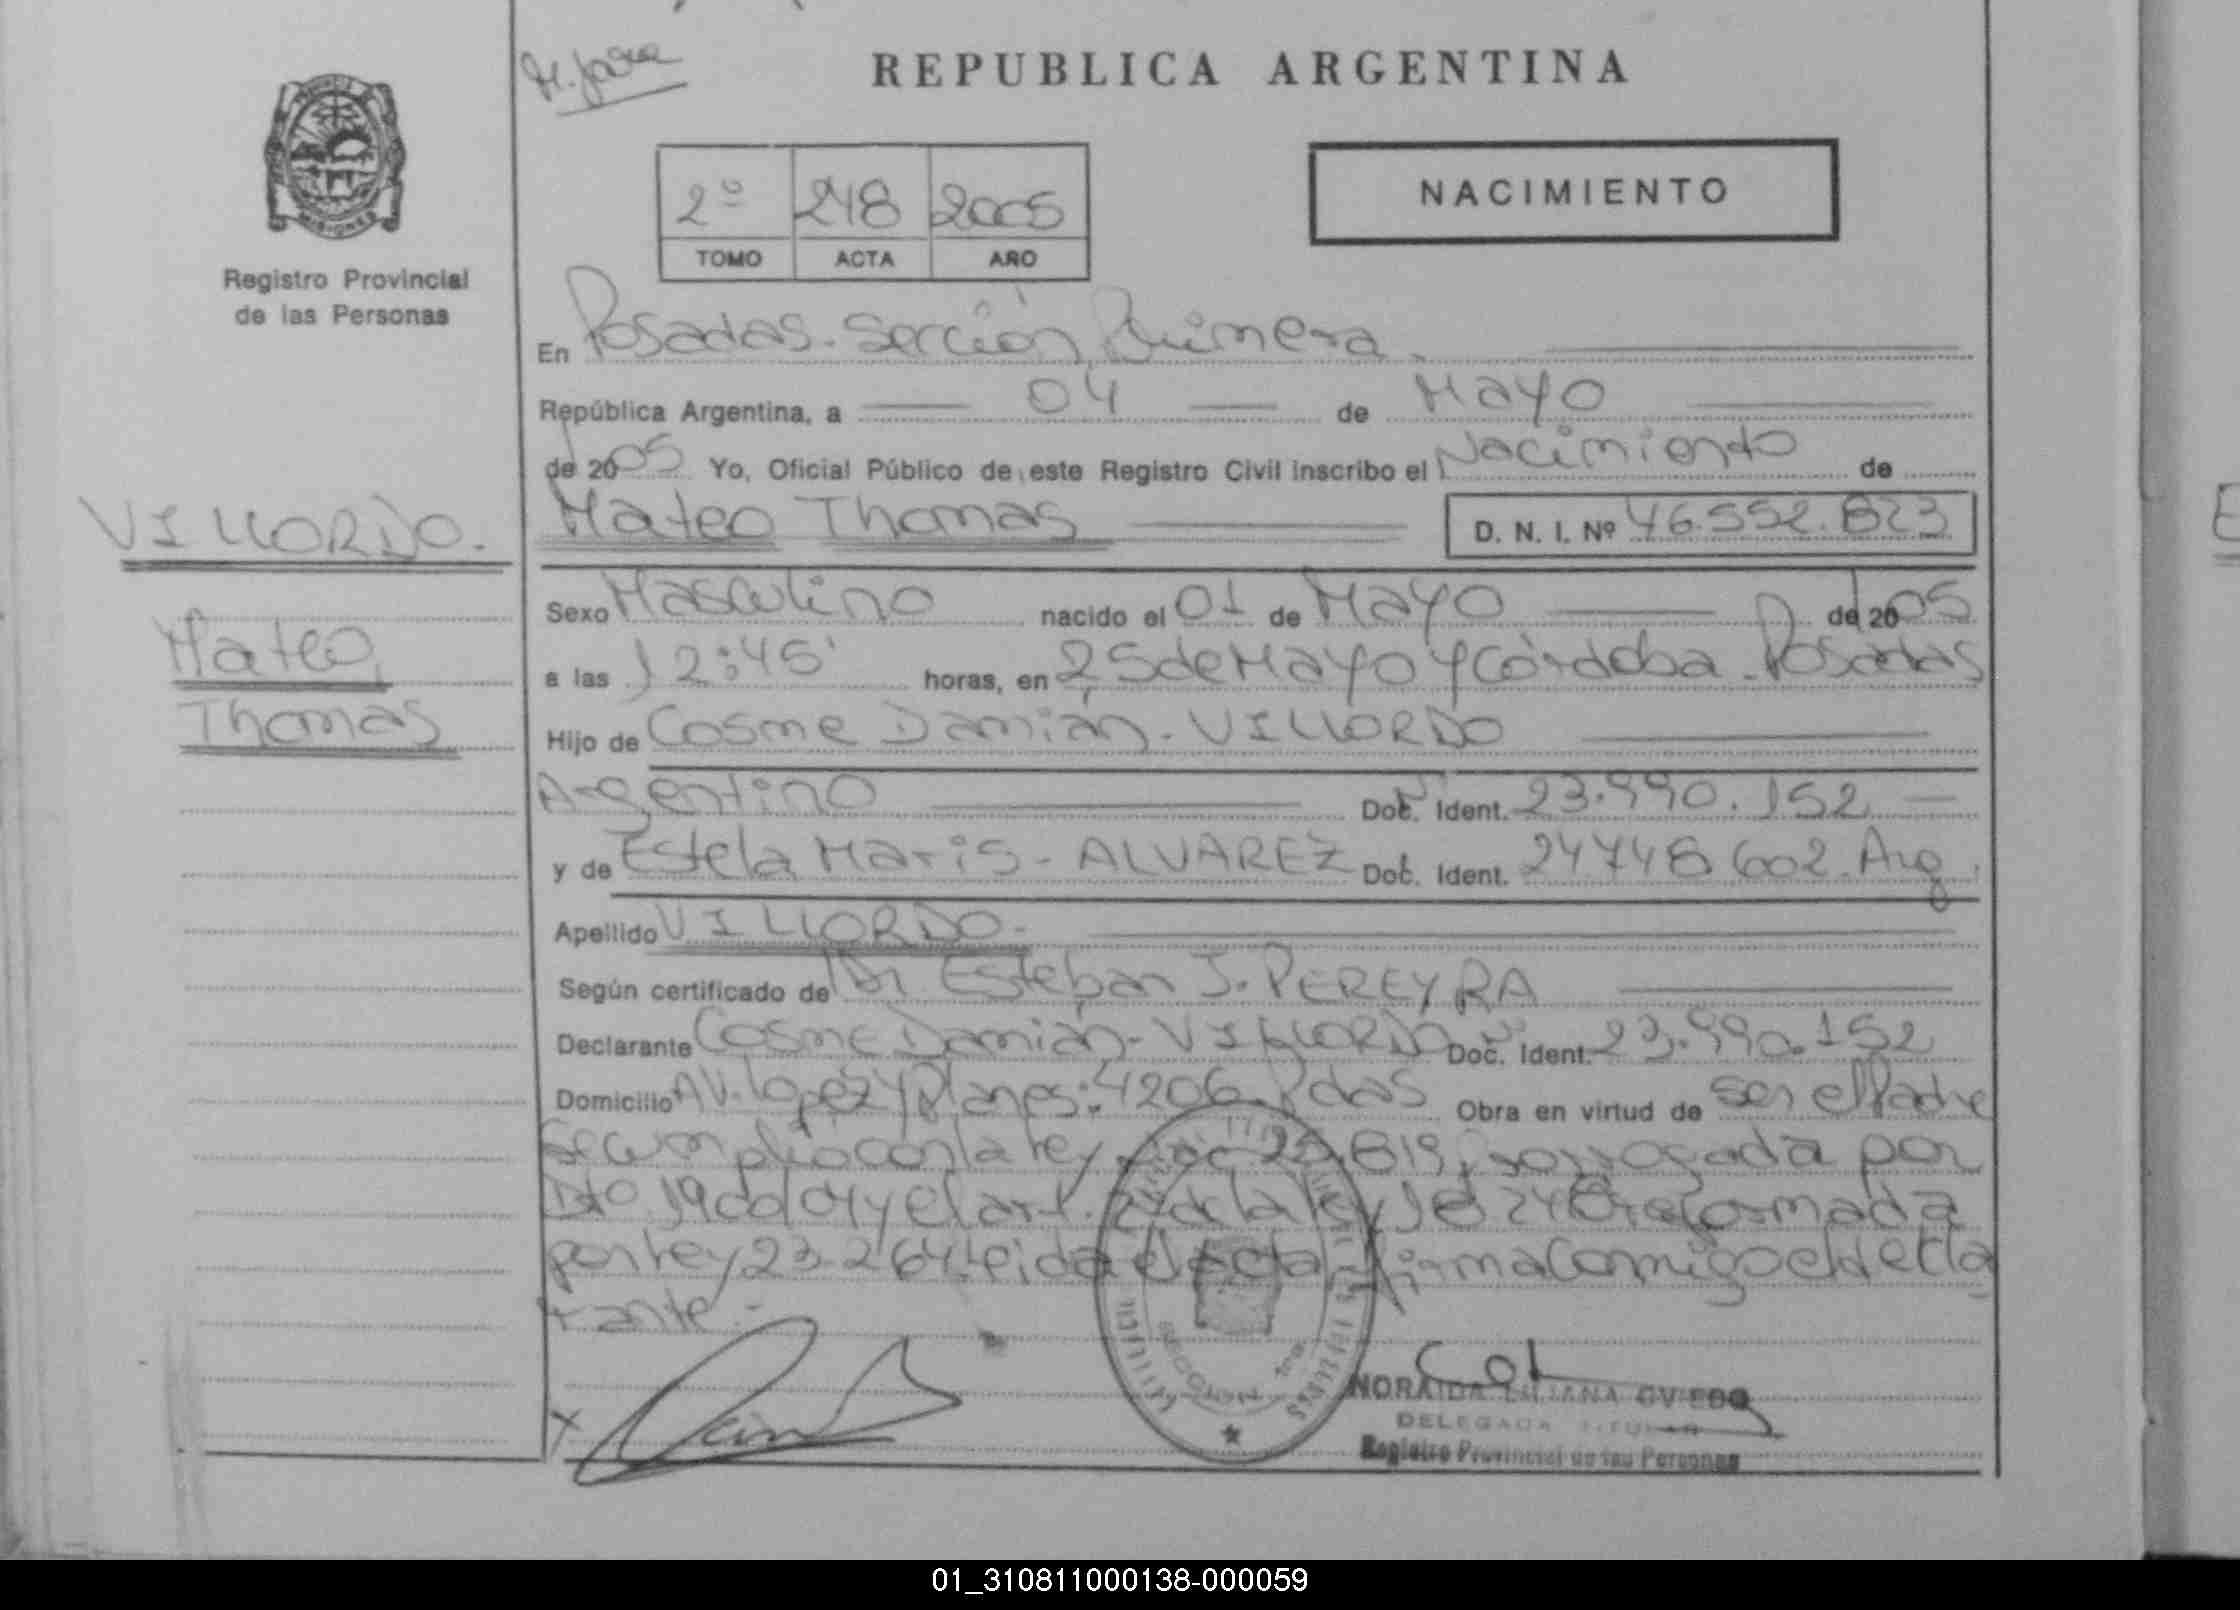 REPUBLICA ARGENTINA
NACIMIENTO
2º 248 2005
TOMO ACTA AÑO
MISIONES
Registro Provincial
de las Personas
En Posadas. Sección Primera.
República Argentina, a 04 de Mayo
de 2005 Yo, Oficial Público de este Registro Civil inscribo el Nacimiento de
Mateo Thomas D. N. I. Nº 46.552.823
VILLORDO.
Mateo
Thomas
Sexo Masculino nacido el 01 de Mayo de 2005
a las 12:45' horas, en 25 de Mayo y Córdoba. Posadas
Hijo de Cosme Damián. VILLORDO
Argentino Doc. Ident. 23.990.152
y de Estela Maris - ALVAREZ Doc. Ident. 24748602. Arg.
Apellido VILLORDO.
Según certificado de Dr Esteban J. PEREYRA
Declarante Cosme Damián - VILLORDO Doc. Ident. 23.990.152
Domicilio AV. Lopez y Planes: 4206. Pdas Obra en virtud de ser el Padre
Se cumplio con la Ley 25.819, prorrogada por
Dto 1900/04 y el art. de la Ley 18248 reformada
por Ley 23.264. Leida el Acta firma Conmigo el decla
rante.-
X
SECCION 1ra
NORAIDA LILIANA OVIEDO
DELEGADA TITULAR
Registro Provincial de las Personas
01_310811000138-000059